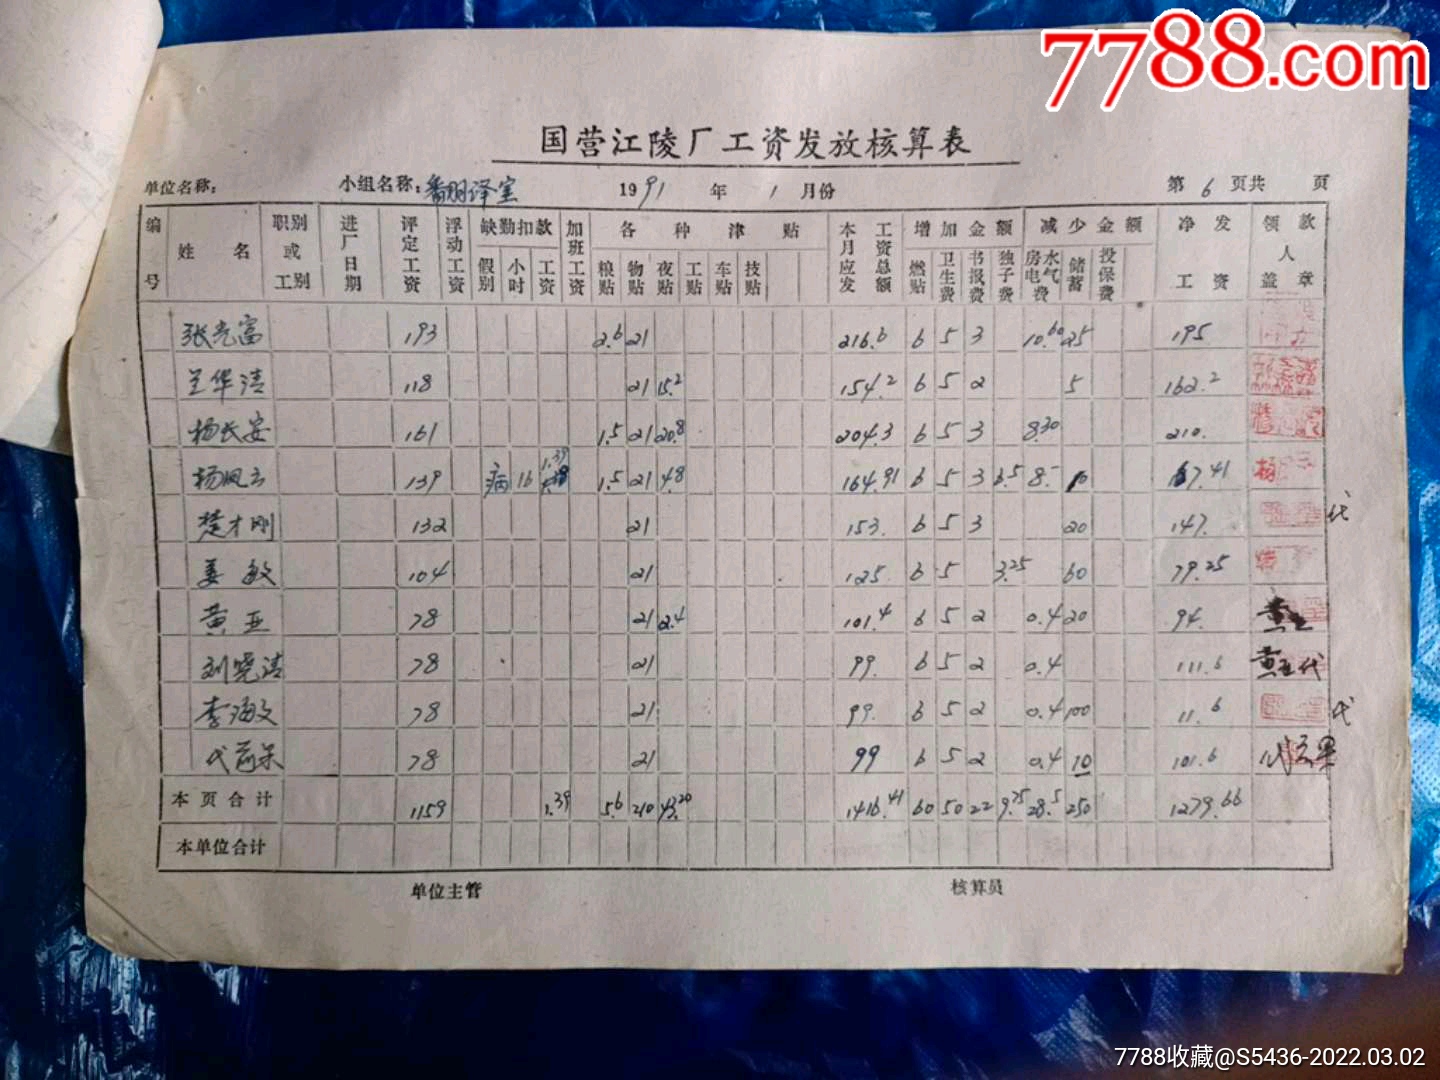 7788.com
国营江陵厂工资发放核算表
单位名称： 小组名称：翻译室 1991年1月份 第6页共 页
编号 姓名 职别或工别 进厂日期 评定工资 浮动工资 缺勤扣款 假别 小时 工资 加班工资 各种津贴 粮贴 物贴 夜贴 工贴 车贴 技贴 本月应发工资总额 增加金额 燃贴 卫生费 书报费 独子费 减少金额 房水电气费 储蓄 投保费 净发工资 领款人盖章
张光富 193 2.6 21 216.6 6 5 3 10.60 25 195
兰华清 118 21 15.2 154.2 6 5 2 5 162.2
杨长安 161 1.5 21 20.8 204.3 6 5 3 8.30 210.
杨凤云 139 病 16 1.39 1.5 21 4.8 164.91 6 5 3 6.5 8.- 10 167.41
楚才刚 132 21 153. 6 5 3 20 147. 代
姜敏 104 21 125. 6 5 3.25 60 79.25
黄亚 78 21 2.4 101.4 6 5 2 0.4 20 94. 黄亚
刘晓清 78 21 99. 6 5 2 0.4 111.6 黄亚代
李海文 78 21 99. 6 5 2 0.4 100 11.6 代
代前采 78 21 99 6 5 2 0.4 10 101.6
本页合计 1159 1.39 5.6 210 43.20 1416.41 60 50 22 9.75 28.5 250 1279.66
本单位合计
单位主管 核算员
7788收藏@S5436-2022.03.02